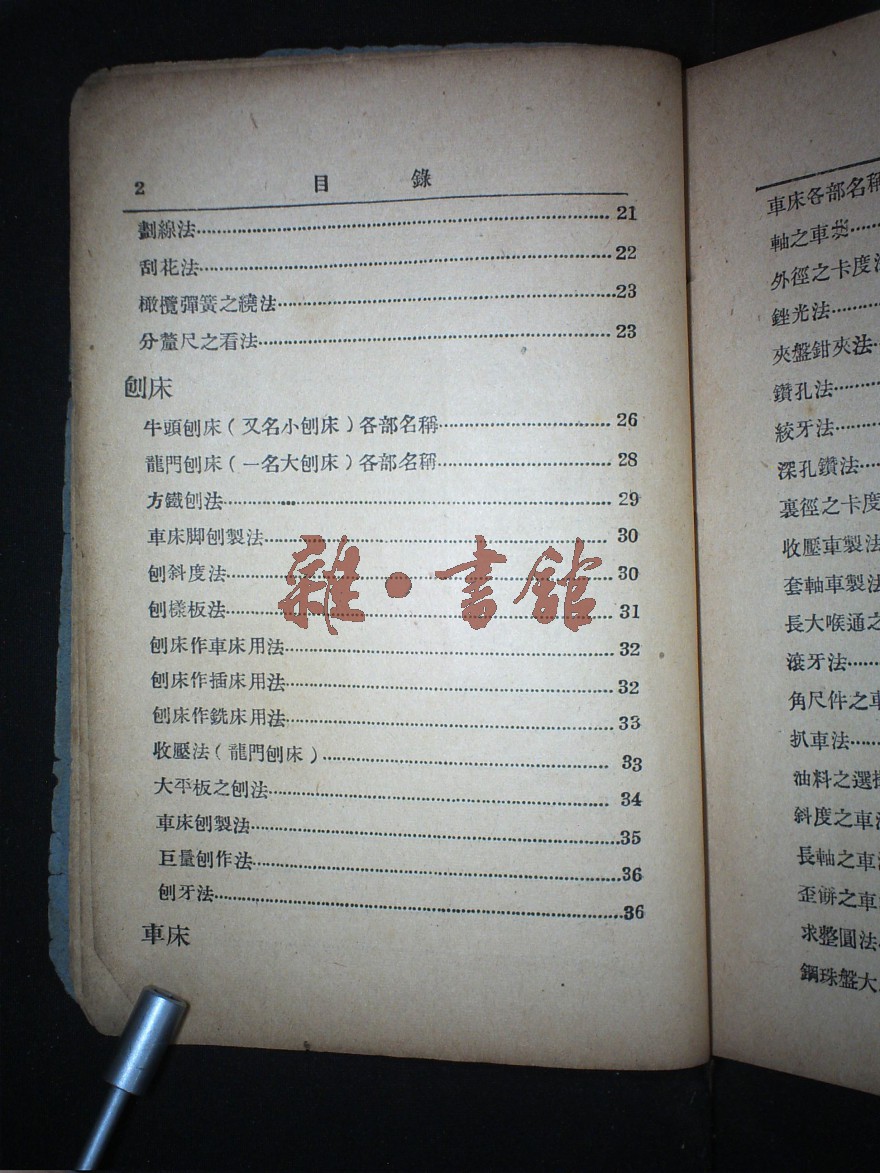 2 目錄
劃線法 21
刮花法 22
橄欖彈簧之繞法 23
分釐尺之看法 23
刨床
牛頭刨床(又名小刨床)各部名稱 26
龍門刨床(一名大刨床)各部名稱 28
方鐵刨法 29
車床脚刨製法 30
刨斜度法 30
刨樣板法 31
刨床作車床用法 32
刨床作插床用法 32
刨床作銑床用法 33
收壓法(龍門刨床) 33
大平板之刨法 34
車床刨製法 35
巨量刨作法 36
刨牙法 36
車床
雜·書館
車床各部名稱
軸之車
外徑之卡度
銼光法
夾盤鉗夾法
鑽孔法
絞牙法
深孔鑽法
裏徑之卡度
收壓車製法
套軸車製法
長大喉通之
滾牙法
角尺件之車
扒車法
油料之選擇
斜度之車
長軸之車
歪餅之車
求整圓法
鋼珠盤大